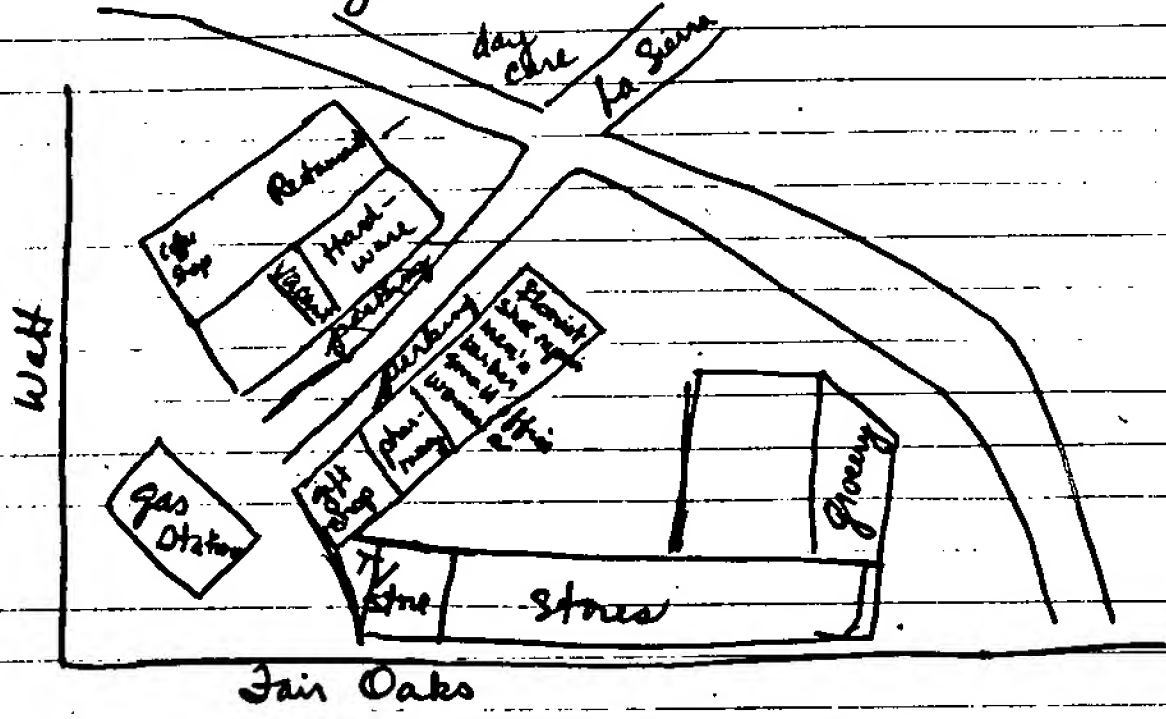 day
care
La Sierra
Restaurant
Coffee
Shop
Hard-
ware
Vacant
parking
parking
Watt
florist
shoe
men's
women
phar-
macy
gift
shop
gas
Station
TV
store
Stores
Grocery
Fair Oaks